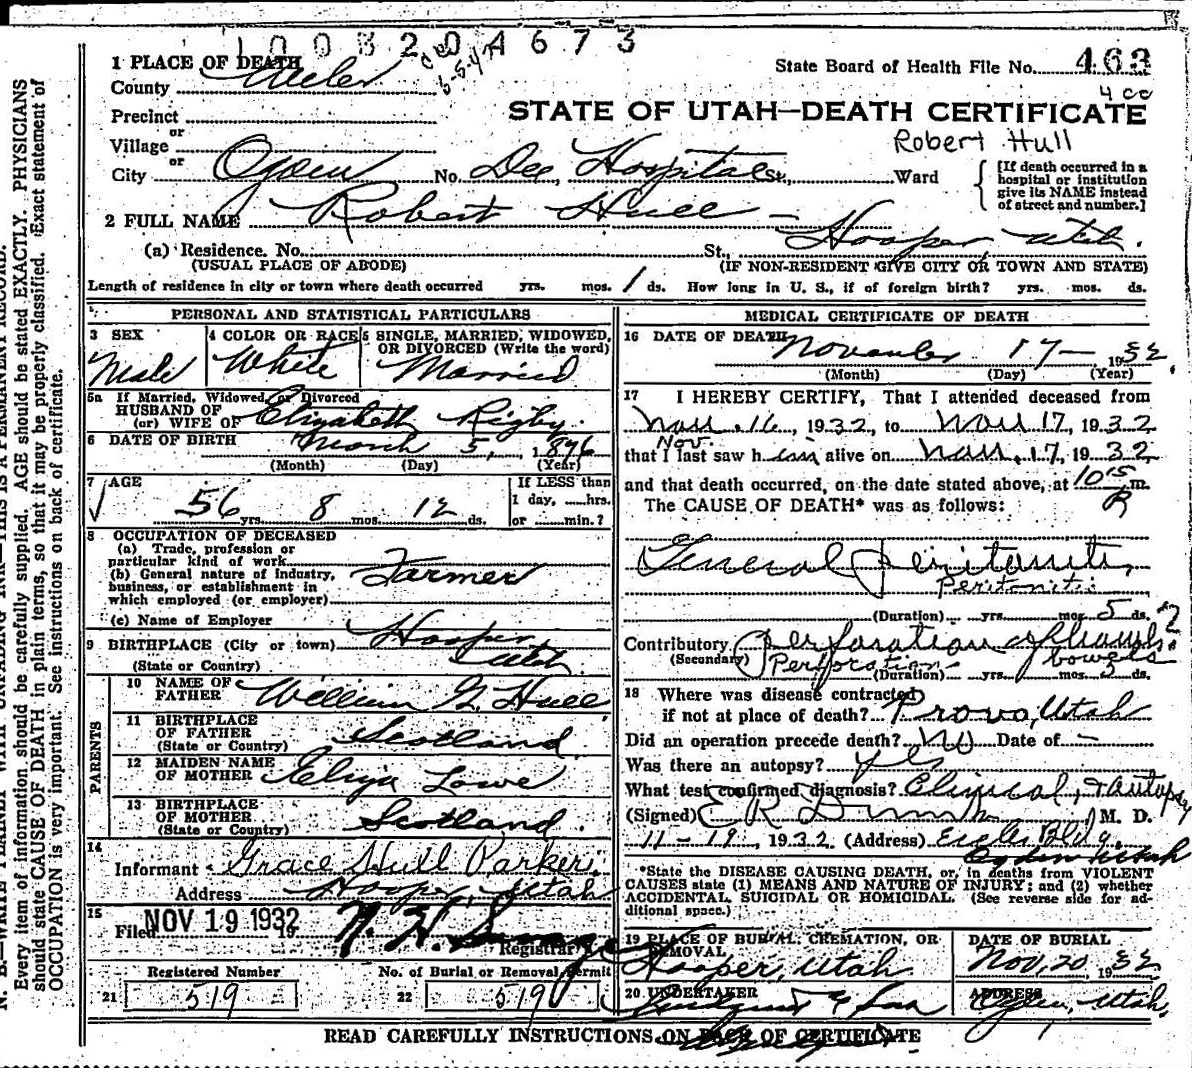 1003204673
1 PLACE OF DEATH
State Board of Health File No. 463
County Weber
4 cc
STATE OF UTAH—DEATH CERTIFICATE
Precinct
or
Village
Robert Hull
or
City Ogden No. Dee Hospital St., Ward
[If death occurred in a
hospital or institution
give its NAME instead
of street and number.]
2 FULL NAME Robert Hull
(a) Residence. No. St., Hooper, Utah.
(USUAL PLACE OF ABODE) (IF NON-RESIDENT GIVE CITY OR TOWN AND STATE)
Length of residence in city or town where death occurred yrs. mos. 1 ds. How long in U. S., if of foreign birth? yrs. mos. ds.
PERSONAL AND STATISTICAL PARTICULARS
3 SEX
Male
4 COLOR OR RACE
White
5 SINGLE, MARRIED, WIDOWED,
OR DIVORCED (Write the word)
Married
5a If Married, Widowed, or Divorced
HUSBAND OF
(or) WIFE OF Elizabeth Rigby.
6 DATE OF BIRTH March 5, 1876
(Month) (Day) (Year)
7 AGE
56 yrs. 8 mos. 12 ds.
If LESS than
1 day, hrs.
or min.?
8 OCCUPATION OF DECEASED
(a) Trade, profession or
particular kind of work
Farmer
(b) General nature of industry,
business, or establishment in
which employed (or employer)
(c) Name of Employer
9 BIRTHPLACE (City or town) Hooper
(State or Country) Utah
PARENTS
10 NAME OF
FATHER William G. Hull
11 BIRTHPLACE
OF FATHER
(State or Country) Scotland
12 MAIDEN NAME
OF MOTHER Eliza Lowe
13 BIRTHPLACE
OF MOTHER
(State or Country) Scotland.
14
Informant Grace Hull Parker.
Address Hooper Utah
15
Filed NOV 19 1932 19
Registrar
Registered Number
21 519
No. of Burial or Removal Permit
22 519
MEDICAL CERTIFICATE OF DEATH
16 DATE OF DEATH November 17 — 1932
(Month) (Day) (Year)
17 I HEREBY CERTIFY, That I attended deceased from
Nov. 16, 1932, to Nov 17, 1932
Nov.
that I last saw him alive on Nov. 17, 1932
and that death occurred, on the date stated above, at 10 15 m.
P
The CAUSE OF DEATH* was as follows:
General Peritonitis
Peritonitis
(Duration) yrs. mos. 5 ds.
Contributory Perforation of bowels
(Secondary) Perforation bowels
(Duration) yrs. mos. 5 ds.
18 Where was disease contracted
if not at place of death? Provo, Utah
Did an operation precede death? No Date of —
Was there an autopsy? yes
What test confirmed diagnosis? Clinical, + autopsy
(Signed) E R Dumke M. D.
11-19, 1932 (Address) Eccles Bldg.
Ogden Utah
*State the DISEASE CAUSING DEATH, or, in deaths from VIOLENT
CAUSES state (1) MEANS AND NATURE OF INJURY; and (2) whether
ACCIDENTAL, SUICIDAL OR HOMICIDAL. (See reverse side for ad-
ditional space.)
19 PLACE OF BURIAL, CREMATION, OR
REMOVAL
Hooper, Utah.
DATE OF BURIAL
Nov, 20, 1932
20 UNDERTAKER
Lindquist & Son
ADDRESS
Ogden, Utah,
READ CAREFULLY INSTRUCTIONS ON BACK OF CERTIFICATE
Every item of information should be carefully supplied. AGE should be stated EXACTLY. PHYSICIANS
should state CAUSE OF DEATH in plain terms, so that it may be properly classified. Exact statement of
OCCUPATION is very important. See instructions on back of certificate.